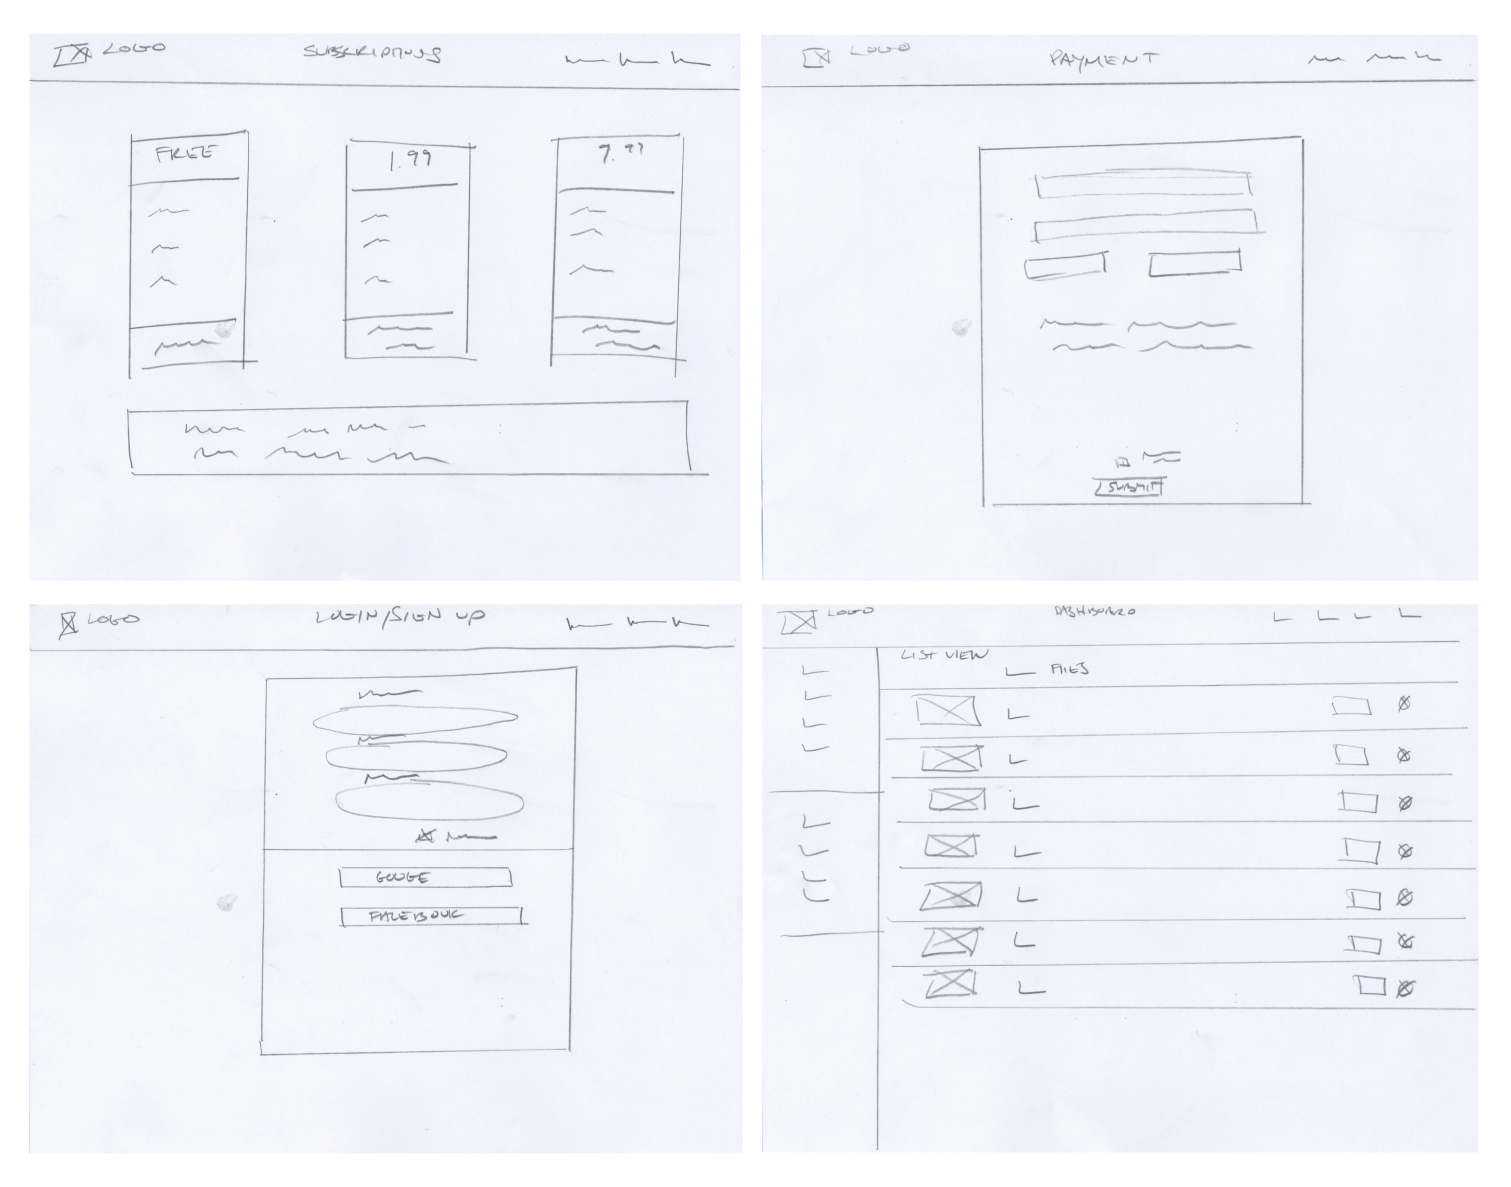 LOGO
SUBSCRIPTIONS
FREE
1.99
9.99
LOGO
PAYMENT
SUBMIT
LOGO
LOGIN/SIGN UP
GOOGE
FACEBOOK
LOGO
DASHBOARD
LIST VIEW
FILES